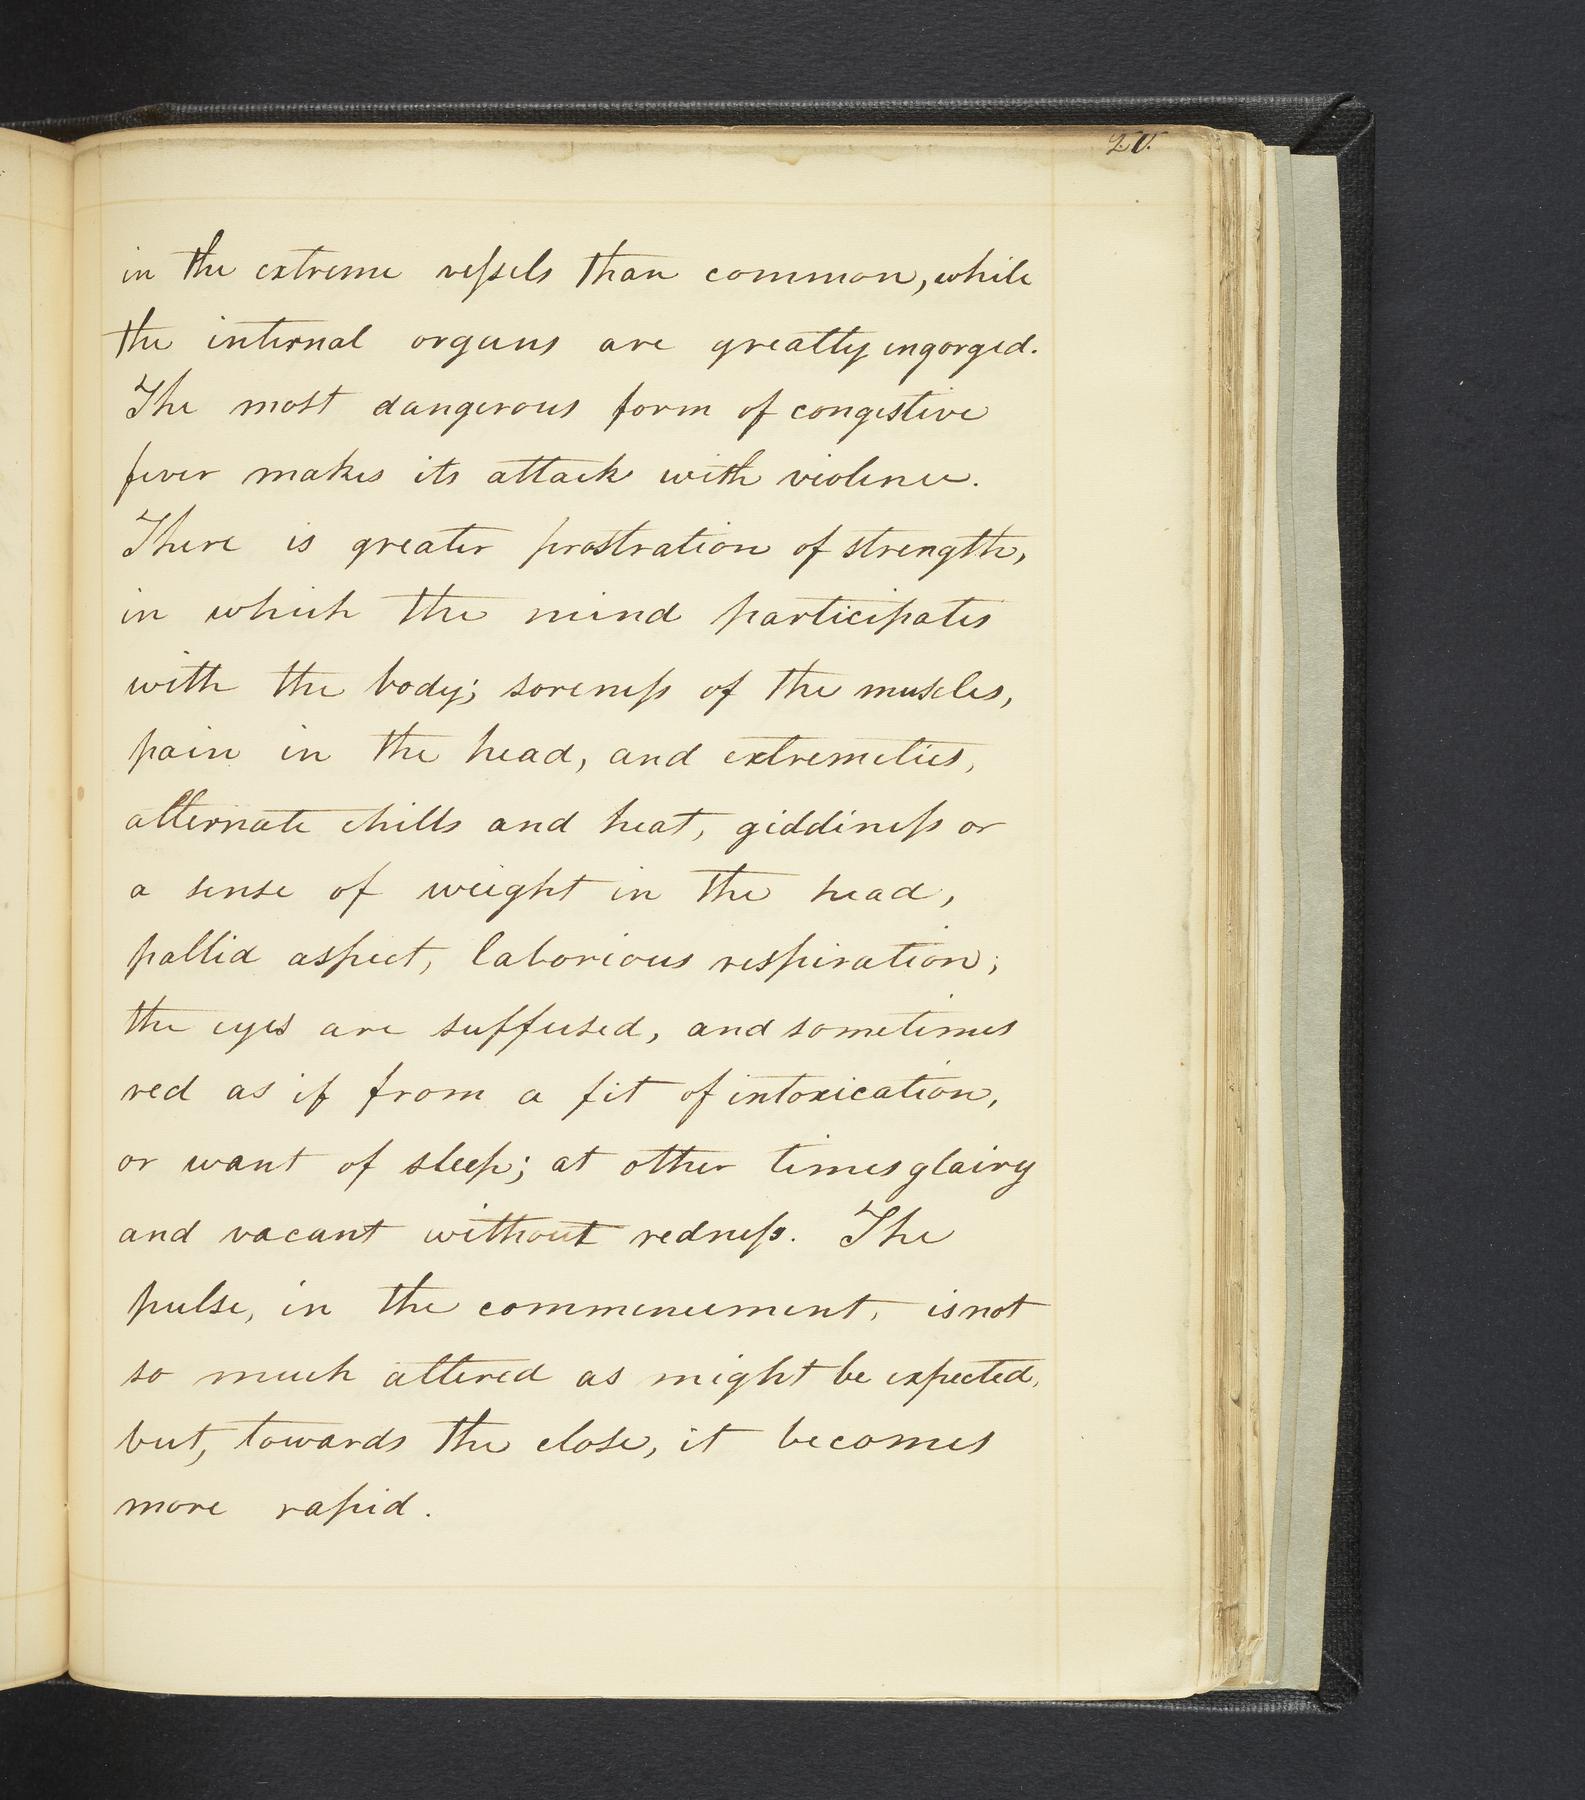 in the extreme vessels than common, while
the internal organs are greatly engorged.
The most dangerous form of congestive
fever makes its attack with violence.
There is greater prostration of strength,
in which the mind participates
with the body; soreness of the muscles,
pain in the head, and extremeties,
alternate chills and heat, giddiness or
a sense of weight in the head,
pallid aspect, laborious respiration;
the eyes are suffused, and sometimes
red as if from a fit of intoxication,
or want of sleep; at other times glairy
and vacant without redness. The
pulse, in the commencement, is not
so much altered as might be expected,
but, towards the close, it becomes
more rapid.